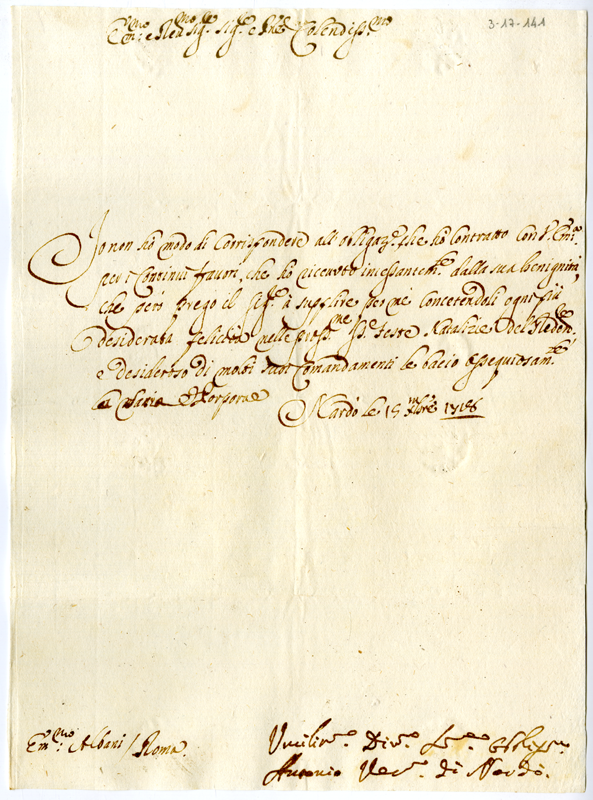 3-17-141
Em:mo e Reu:mo Sig:r Sig:r e Pne Colendiss:mo
Io non hò modo di Corrispondere all'obligaz:e che hò Contratto con V. Em:a
per i Continui favori, che hò ricevuto incessantem:te dalla sua benignità,
che però prego il Sig:re à supplire per me concetendoli ogni più
desiderata felicità nelle pross:me SS:e feste Natalizie del Reden:re
e desideroso di molti suoi Comandamenti le bacio ossequiosam:te
la Porpora Nardò le 15 Xbre 1718
Em:mo Albani / Roma
Umilis:o Div:o Ser:e Obblig:mo
Antonio Vesc:o di Nardò.